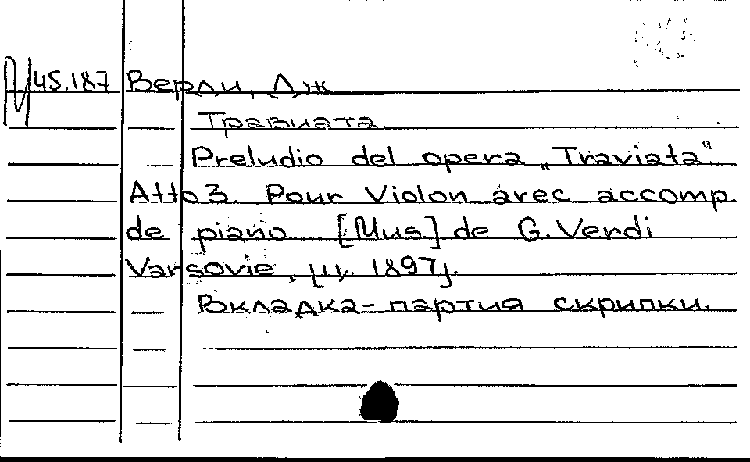 45.187 Верди, Дж
Травиата
Preludio del opera „Traviata"
Atto 3. Pour Violon avec accomp.
de piano [Mus] de G. Verdi
Varsovie, 1897
Вкладка - партия скрипки.